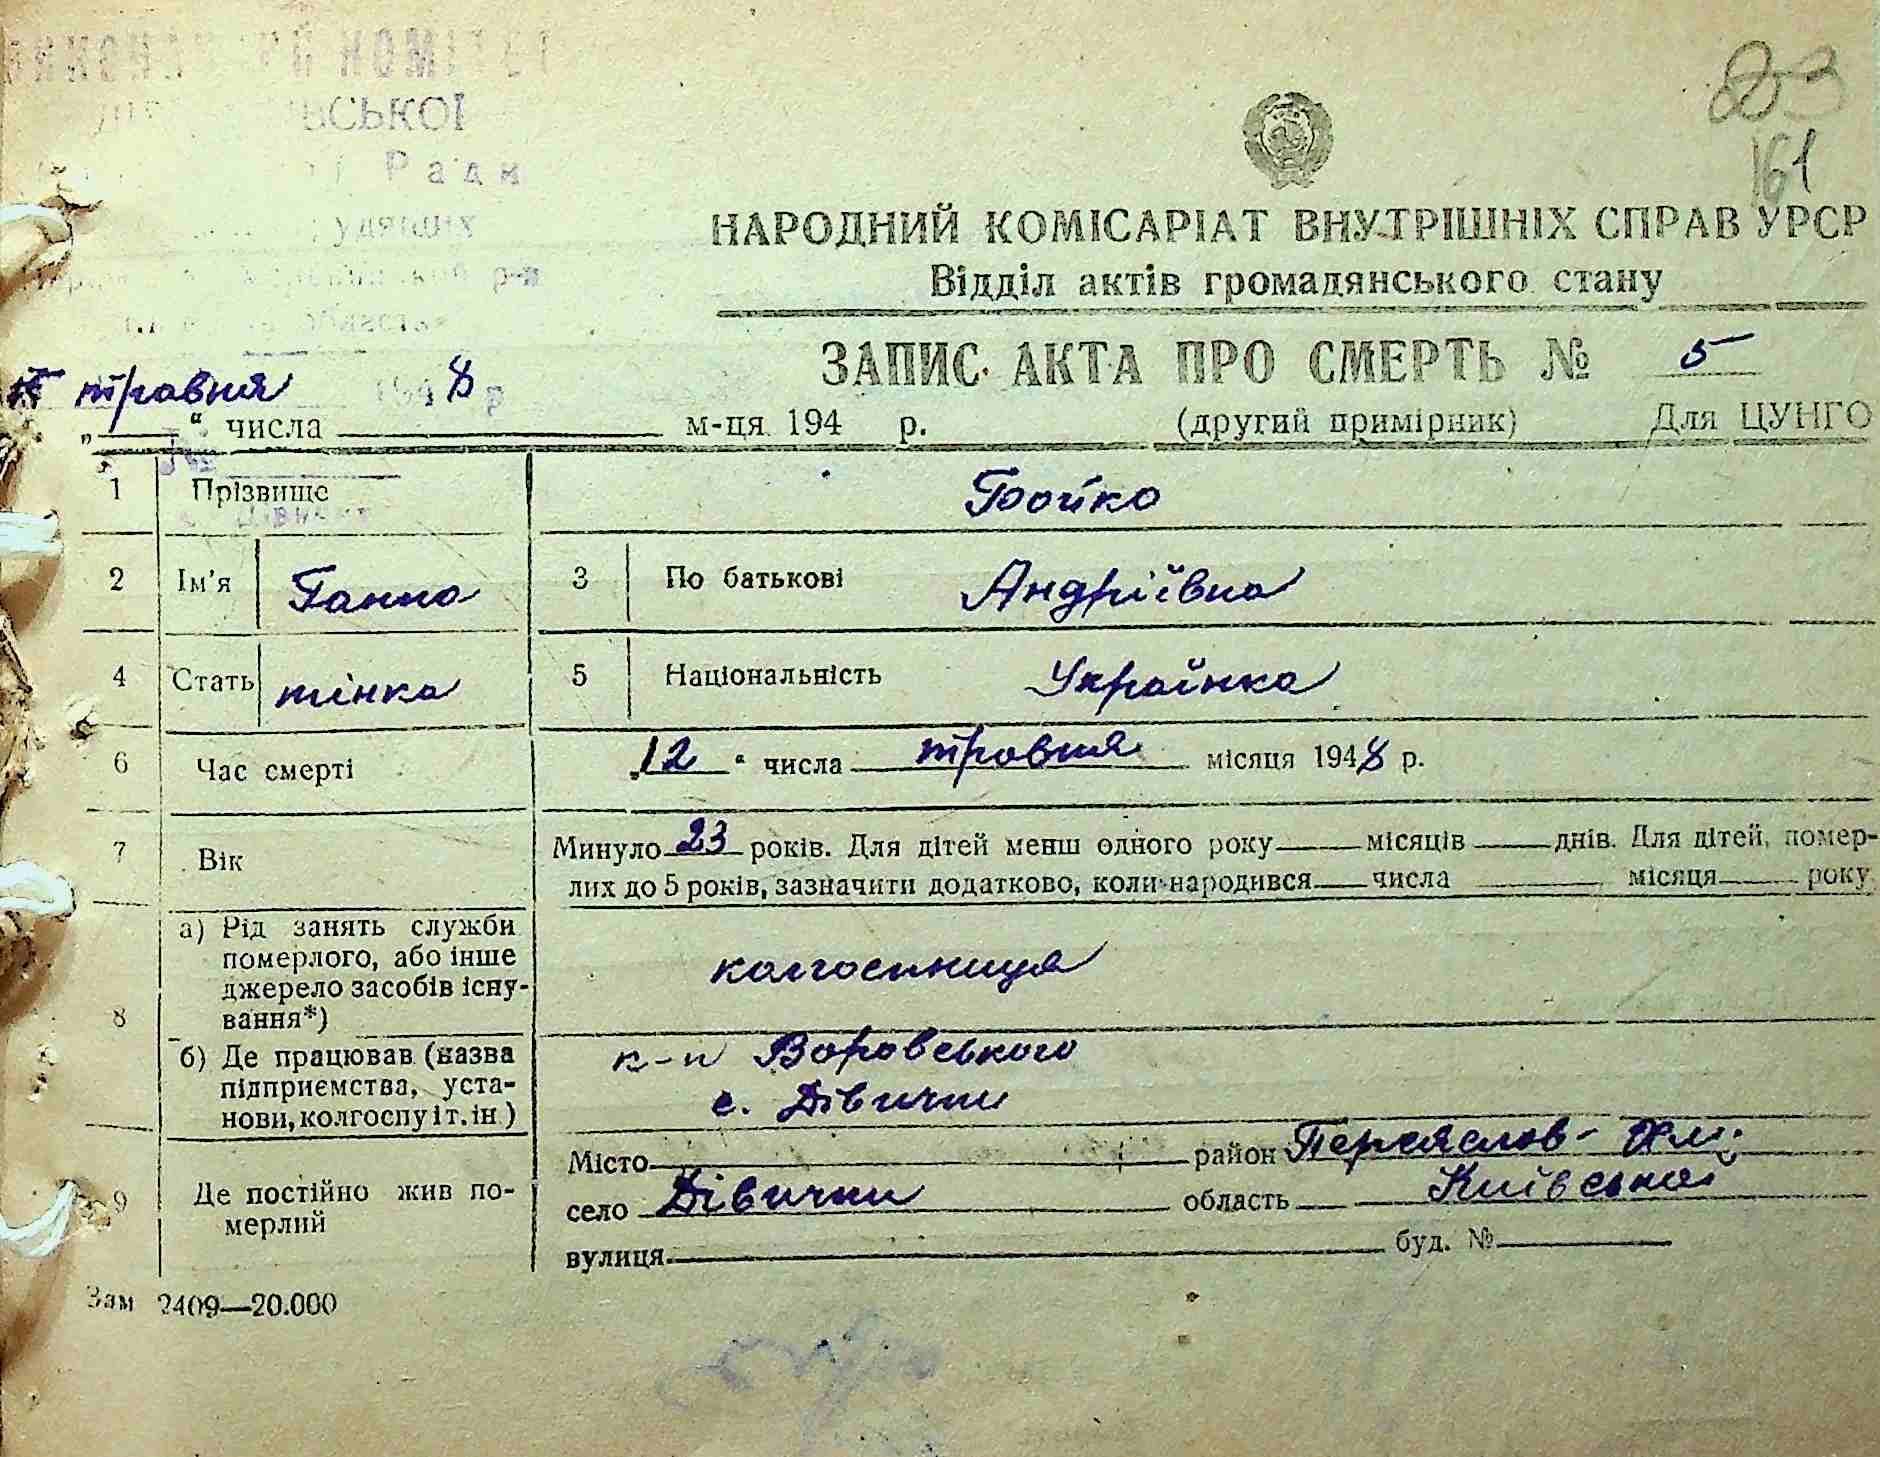 ВИКОНАВЧИЙ КОМІТЕТ
ЬСЬКОЇ
Ради
р-н
83
161
НАРОДНИЙ КОМІСАРІАТ ВНУТРІШНІХ СПРАВ УРСР
Відділ актів громадянського стану
ЗАПИС АКТА ПРО СМЕРТЬ № 5
травня 1948 р
„ “ числа м-ця 194 р. (другий примірник) Для ЦУНГО
1 Прізвище Бойко
2 Ім'я Ганна 3 По батькові Андріївна
4 Стать жінка 5 Національність Українка
6 Час смерті „12 “ числа травня місяця 1948 р.
7 Вік Минуло 23 років. Для дітей менш одного року місяців днів. Для дітей, помер-
лих до 5 років, зазначити додатково, коли народився числа місяця року
8 а) Рід занять служби
померлого, або інше
джерело засобів існу-
вання*) колгоспниця
б) Де працював (назва
підприємства, уста-
нови, колгоспу і т. ін.)
к-п Воровського
с. Дівички
9 Де постійно жив по-
мерлий
Місто район Переяслов-Хм.
село Дівички область Київської
вулиця буд. №
Зам 2409—20.000